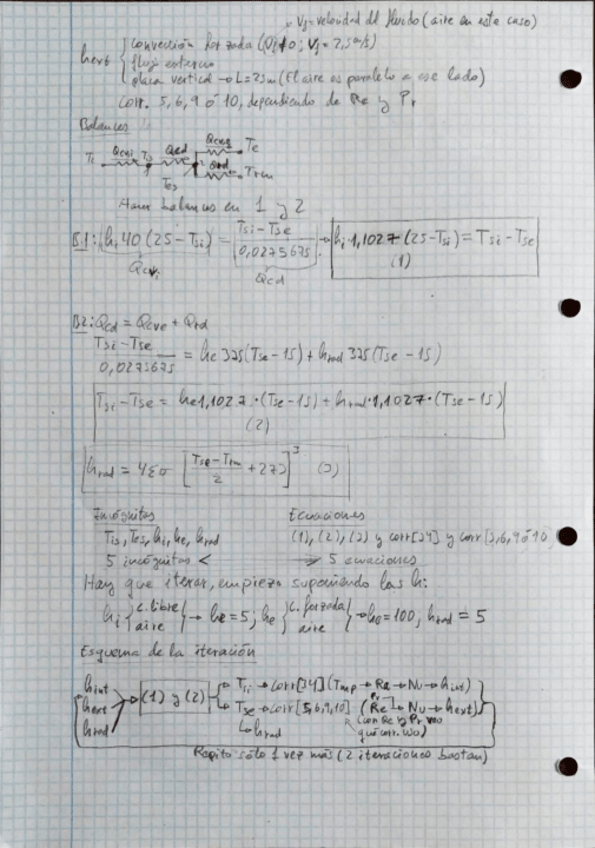 Vf = velocidad del fluido (aire en este caso)
hext { convección forzada (Vf≠0; Vf = 2,5 m/s)
flujo externo
placa vertical → L=25m (El aire es paralelo a ese lado)
Corr. 5, 6, 9 ó 10, dependiendo de Re y Pr
Balances
Ti Qcvi Ts Qcd Qcve Te
Tes Qrd Trm
Hacer balances en 1 y 2
B.1: hi 40 (25 - Tsi) = Tsi - Tse / 0,0275675 → hi·1,1027 (25 - Tsi) = Tsi - Tse
(1)
Qcvi Qcd
B2: Qcd = Qcve + Qrd
Tsi - Tse / 0,0275675 = he (Tse - 15) + hrad (Tse - 15)
Tsi - Tse = he 1,1027·(Tse - 15) + hrad·1,1027·(Tse - 15)
(2)
hrad = 4εσ [Tse - Trm / 2 + 273]³ (3)
Incógnitas Ecuaciones
Tis, Tes, hi, he, hrad (1), (2), (3) y corr[34] y corr[5,6,9 ó 10]
5 incógnitas < > 5 ecuaciones
Hay que iterar, empiezo suponiendo las h:
hi { c. libre aire } → he = 5; he { c. forzada aire } → he = 100, hrad = 5
Esquema de la iteración
hint hext hrad → (1) y (2) → Tsi → corr[34] (Tmp → Ra → Nu → hint)
Tse → corr[5,6,9,10] (Pr Re → Nu → hext)
(con Re y Pr veo qué corr. uso)
hrad
Repito sólo 1 vez más (2 iteraciones bastan)